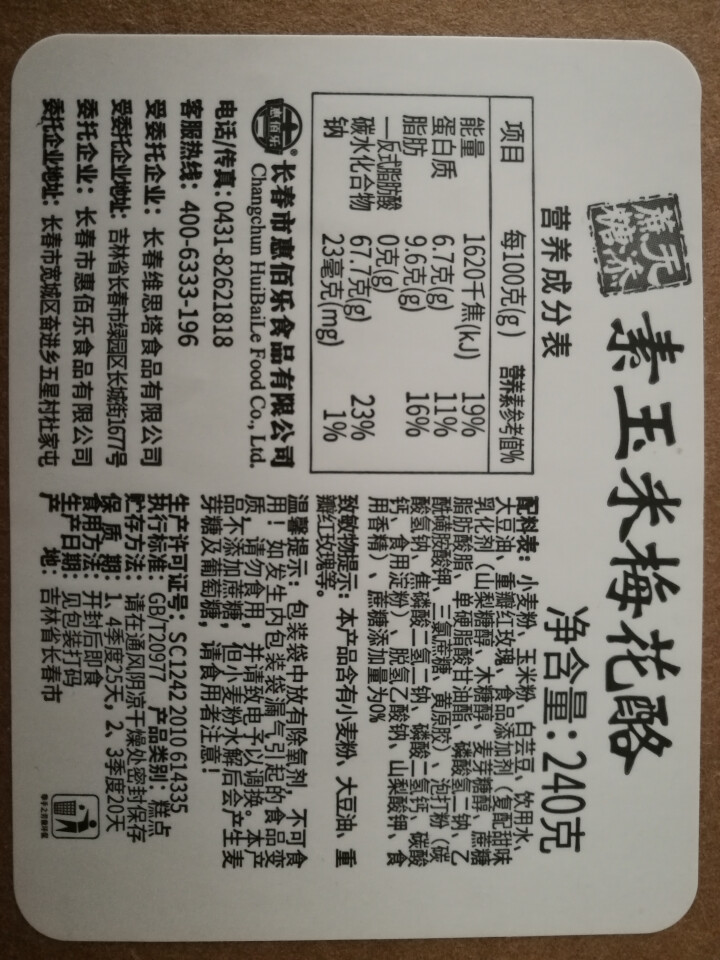 无添
蔗糖
素玉米梅花酪
净含量：240克
营养成分表
项目 每100克(g) 营养素参考值%
能量 1620千焦(kJ) 19%
蛋白质 6.7克(g) 11%
脂肪 9.6克(g) 16%
—反式脂肪酸 0克(g)
碳水化合物 67.7克(g) 23%
钠 23毫克(mg) 1%
惠佰乐
长春市惠佰乐食品有限公司
Changchun HuiBaiLe Food Co., Ltd.
电话/传真：0431-82621818
客服热线：400-6333-196
受委托企业：长春维思塔食品有限公司
受委托企业地址：吉林省长春市绿园区长城街1677号
委托企业：长春市惠佰乐食品有限公司
委托企业地址：长春市宽城区奋进乡五星村杜家屯
配料表：小麦粉、玉米粉、白芸豆、饮用水、
大豆油、重瓣红玫瑰、食品添加剂（复配甜味
乳化剂（山梨糖醇、木糖醇、麦芽糖醇、蔗糖
脂肪酸脂、单硬脂酸甘油酯、磷酸氢二钠、乙
酰磺胺酸钾、三氯蔗糖、黄原胶）、泡打粉（碳
酸氢钠、焦磷酸二氢二钠、磷酸二氢钙、碳酸
钙、食用淀粉）、脱氢乙酸钠、山梨酸钾、食
用香精）、蔗糖添加量为0%
致敏物提示：本产品含有小麦粉、大豆油、重
瓣红玫瑰等。
温馨提示：包装袋中放有除氧剂，不可食
用！如发生内包装袋漏气引起的食品变
质，请勿食用，并请致电予以调换。本产
品不添加蔗糖，但小麦粉水解后会产生麦
芽糖及葡萄糖，请食用者注意！
生产许可证号：SC1242 2010 614335
执行标准：GB/T20977 产品类别：糕点
贮存方法：请在通风阴凉干燥处密封保存
保质期：1、4季度25天，2、3季度20天
食用方法：开封后即食
生产日期：见包装打码
产地：吉林省长春市